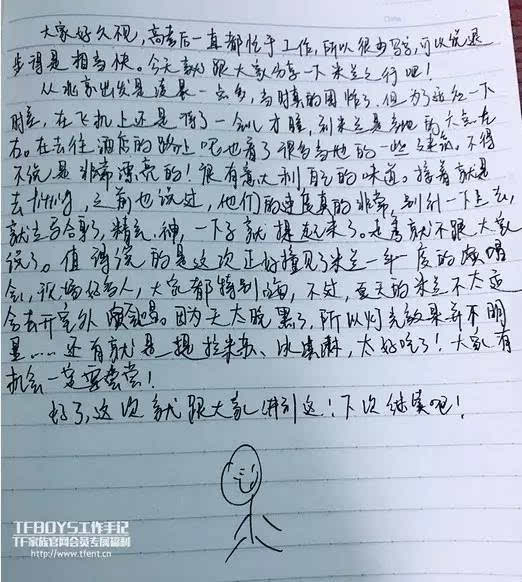 大家好久不见，高考后一直都忙于工作，所以很少写字，可以说退
步得是相当快。今天就跟大家分享一下米兰之行吧！
从北京出发是凌晨一点多，当时真的困炸了，但为了适应一下
时差，在飞机上还是撑了一会儿才睡，到米兰是当地的六点左
右。在去往酒店的路上呢也看了很多当地的一些建筑。不得
不说是非常漂亮的！很有意大利自己的味道。接着就是
去fitting，之前也说过，他们的速度真的非常，别针一下上去，
就立马合身了，精气神，一下子就提起来了。走秀就不跟大家
说了。值得说的是这次正好撞见了米兰一年一度的演唱
会，现场好多人，大家都特别嗨，不过，夏天的米兰不太适
合去开室外演唱会。因为天太晚黑了，所以灯光效果并不明
显……还有就是提拉米苏、冰淇淋，太好吃了！大家有
机会一定要尝尝！
好了，这次就跟大家讲到这！下次继续吧！
TFBOYS工作手记
TF家族官网会员专属福利
http://www.tfent.cn